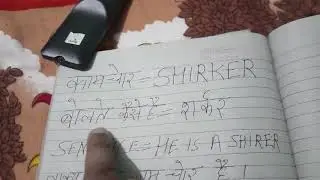 कामचोर = SHIRKER
बोलते कैसे हैं = शर्कर
SENTENCE = HE IS A SHIRER
चोर है।